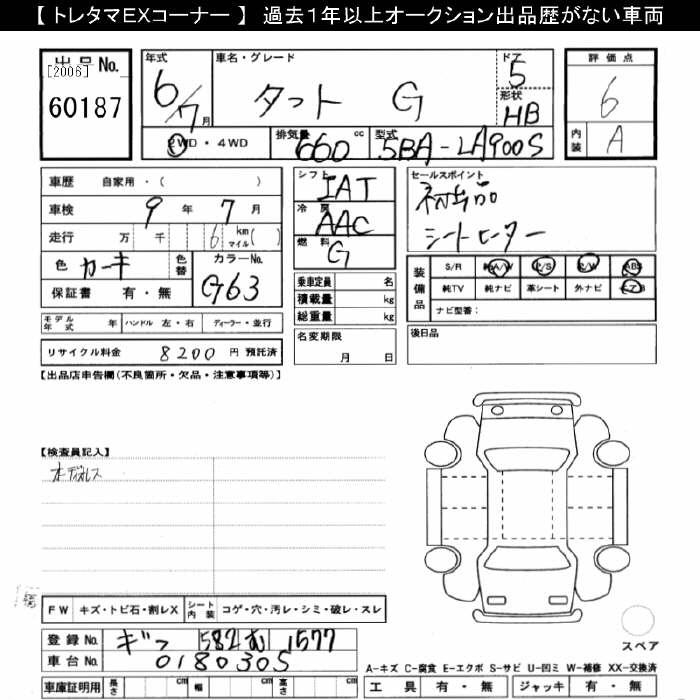 【 トレタマEXコーナー 】 過去1年以上オークション出品歴がない車両
出品No.
[2006]
60187
年式
6/7月
車名・グレード
タント G
ドア
5
形状
HB
2WD・4WD
排気量 660 cc
型式 5BA-LA900S
評価点
6
内装 A
車歴 自家用・( )
車検 9年 7月
走行 万 千 6 km マイル( )
色 カーキ 色替
カラーNo. G63
保証書 有・無
モデル年式 年 ハンドル 左・右 ディーラー・並行
リサイクル料金 8200 円 預託済
シフト IAT
冷房 AAC
燃料 G
乗車定員 名
積載量 kg
総重量 kg
名変期限
月 日
セールスポイント
初出品
シートヒーター
装備品
S/R 純A/W P/S P/W ABS
純TV 純ナビ 革シート 外ナビ エアB
ナビ型番:
後日品
【出品店申告欄(不良箇所・欠品・注意事項等)】
【検査員記入】
FW キズ・トビ石・割レX シート内装 コゲ・穴・汚レ・シミ・破レ・スレ
登録No. ギフ 582 む 1577
車台No. 0180305
車庫証明用 長さ cm 幅 cm 高さ cm
スペア
A-キズ C-腐食 E-エクボ S-サビ U-凹ミ W-補修 XX-交換済
工具 有・無 ジャッキ 有・無